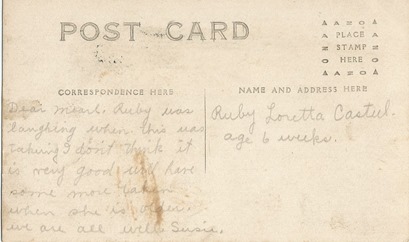 POST CARD
AZOA
PLACE
STAMP
HERE
AZOA
CORRESPONDENCE HERE
NAME AND ADDRESS HERE
Dear Ruby was
laughing when this was
taking I don't think it
is very good will have
some more taken
when she is older.
we are all well Susie.
Ruby Loretta Casteel.
age 6 weeks.